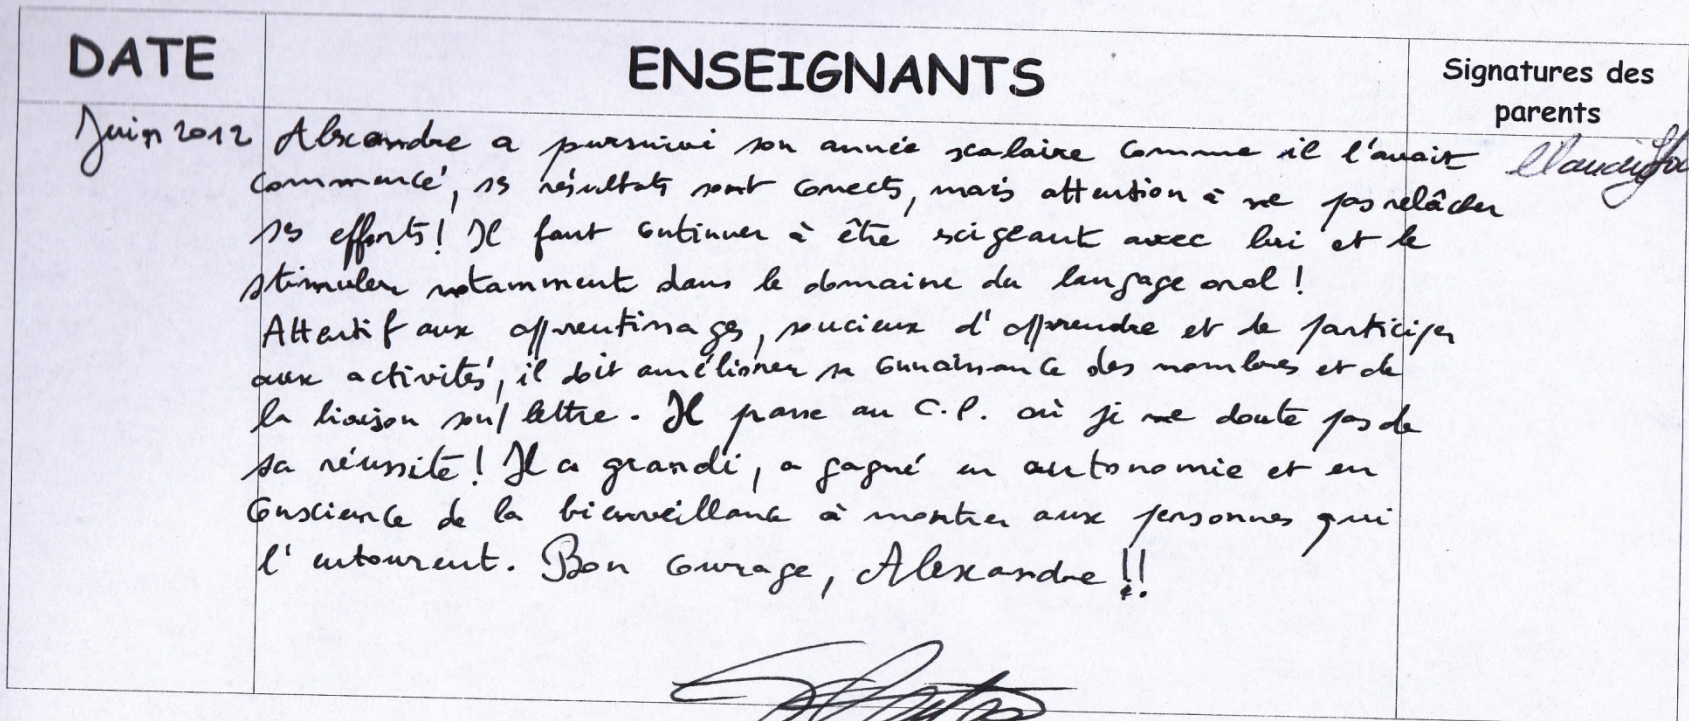 DATE
ENSEIGNANTS
Signatures des
parents
Juin 2012
Alexandre a poursuivi son année scolaire comme il l'avait
commencé, ses résultats sont corrects, mais attention à ne pas relâcher
ses efforts ! Il faut continuer à être exigeant avec lui et le
stimuler notamment dans le domaine du langage oral !
Attentif aux apprentissages, soucieux d'apprendre et de participer
aux activités, il doit améliorer sa connaissance des nombres et de
la liaison son/lettre. Il passe au C.P. où je ne doute pas de
sa réussite ! Il a grandi, a gagné en autonomie et en
conscience de la bienveillance à montrer aux personnes qui
l'entourent. Bon courage, Alexandre !!